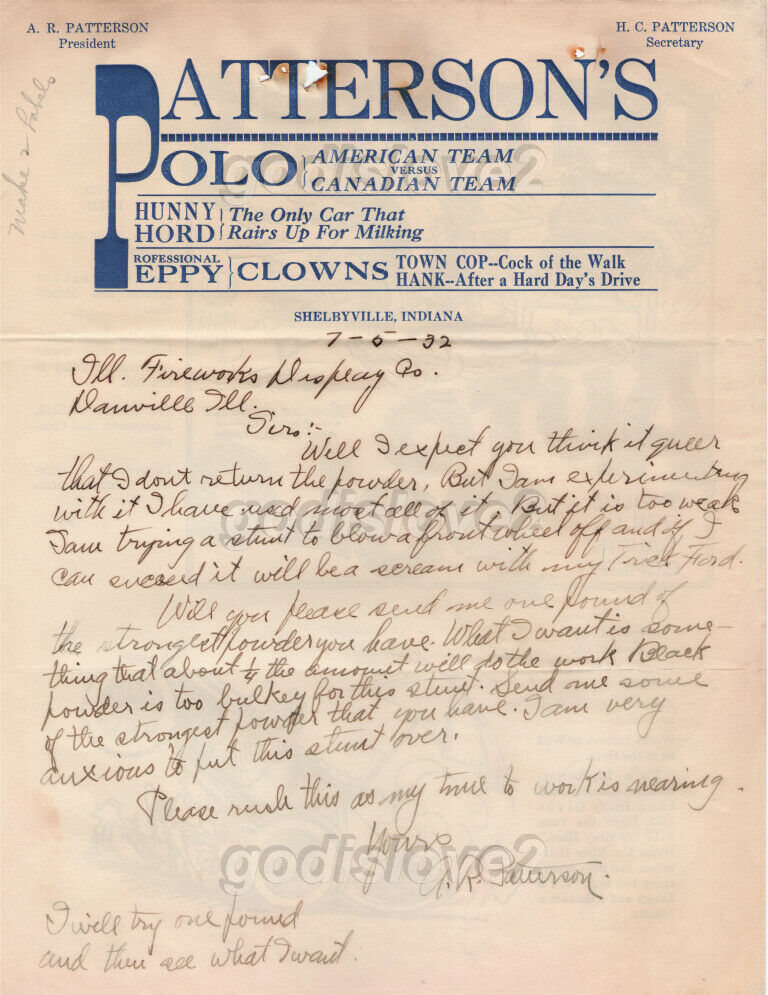 A. R. PATTERSON
President
H. C. PATTERSON
Secretary
PATTERSON'S
POLO } AMERICAN TEAM VERSUS CANADIAN TEAM
HUNNY HORD } The Only Car That Rairs Up For Milking
PROFESSIONAL PEPPY } CLOWNS TOWN COP--Cock of the Walk
HANK--After a Hard Day's Drive
SHELBYVILLE, INDIANA
Make 2
7-5-32
Ill. Fireworks Display Co.
Danville Ill.
Sirs:-
Well I expect you think it queer
that I dont return the powder, But I am experimenting
with it I have used most all of it, But it is too weak
I am trying a stunt to blow a front wheel off and if I
can succeed it will be a scream with my Trick Ford.
Will you please send me one pound of
the strongest powder you have. What I want is some-
thing that about ¼ the amount will do the work Black
powder is too bulkey for this stunt. Send me some
of the strongest powder that you have. I am very
anxious to put this stunt over.
Please rush this as my time to work is nearing.
Yours
A. R. Patterson.
I will try one pound
and then see what I want.
godislove2
godislove2
godislove2